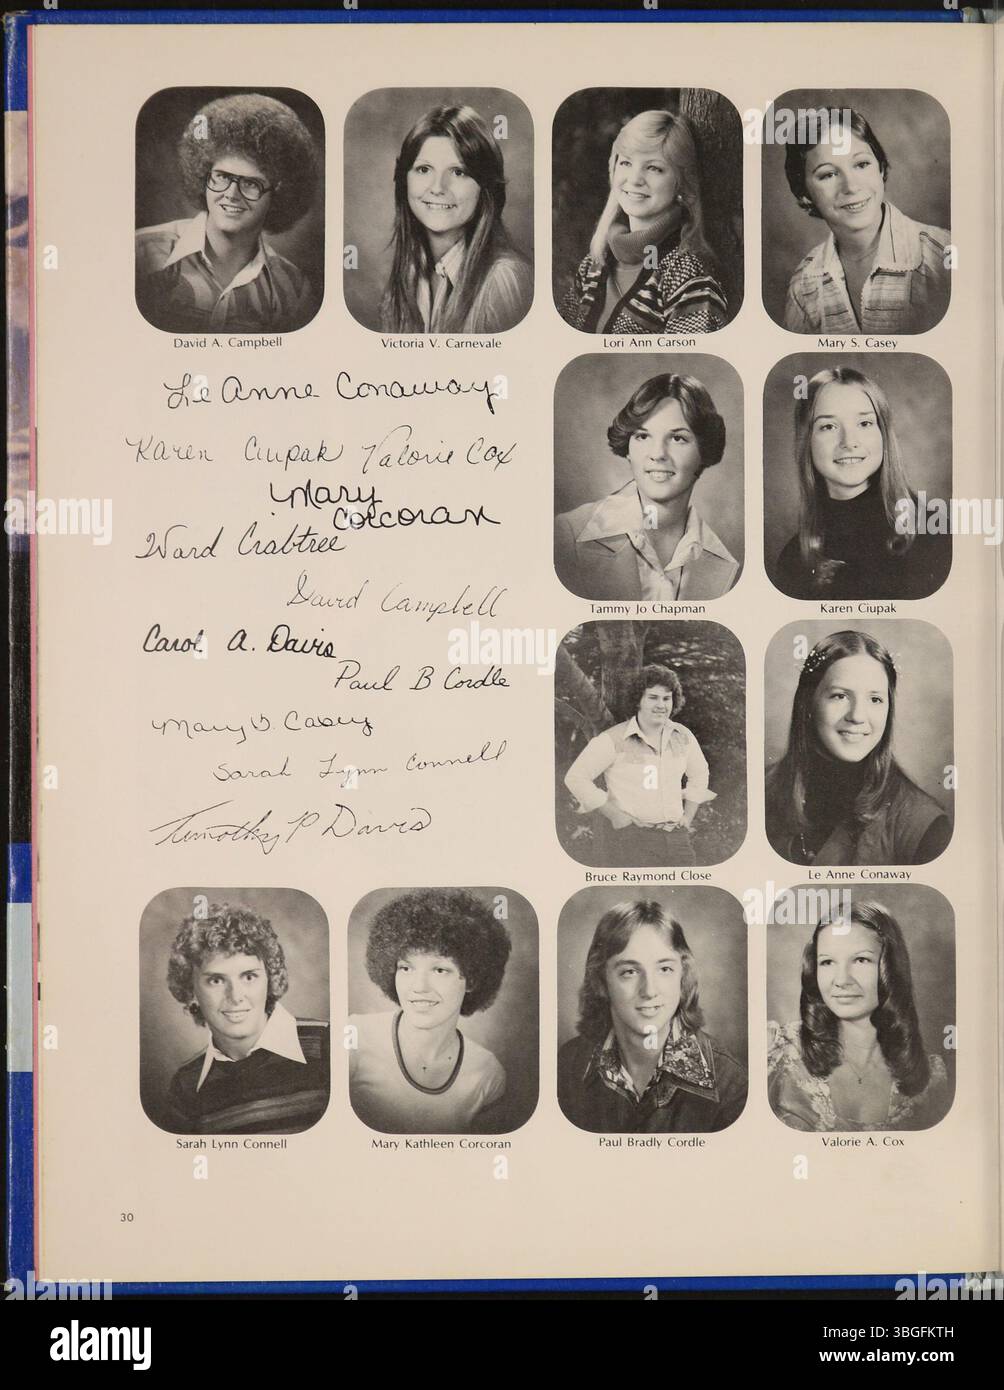 David A. Campbell
Victoria V. Carnevale
Lori Ann Carson
Mary S. Casey
Le Anne Conaway
Karen Ciupak Valorie Cox
Mary
Corcoran
Ward Crabtree
David Campbell
Carol A. Davis
Paul B Cordle
Mary S. Casey
Sarah Lynn Connell
Timothy P Davis
Tammy Jo Chapman
Karen Ciupak
Bruce Raymond Close
Le Anne Conaway
Sarah Lynn Connell
Mary Kathleen Corcoran
Paul Bradly Cordle
Valorie A. Cox
30
alamy
Image ID: 3BGFKTH
www.alamy.com